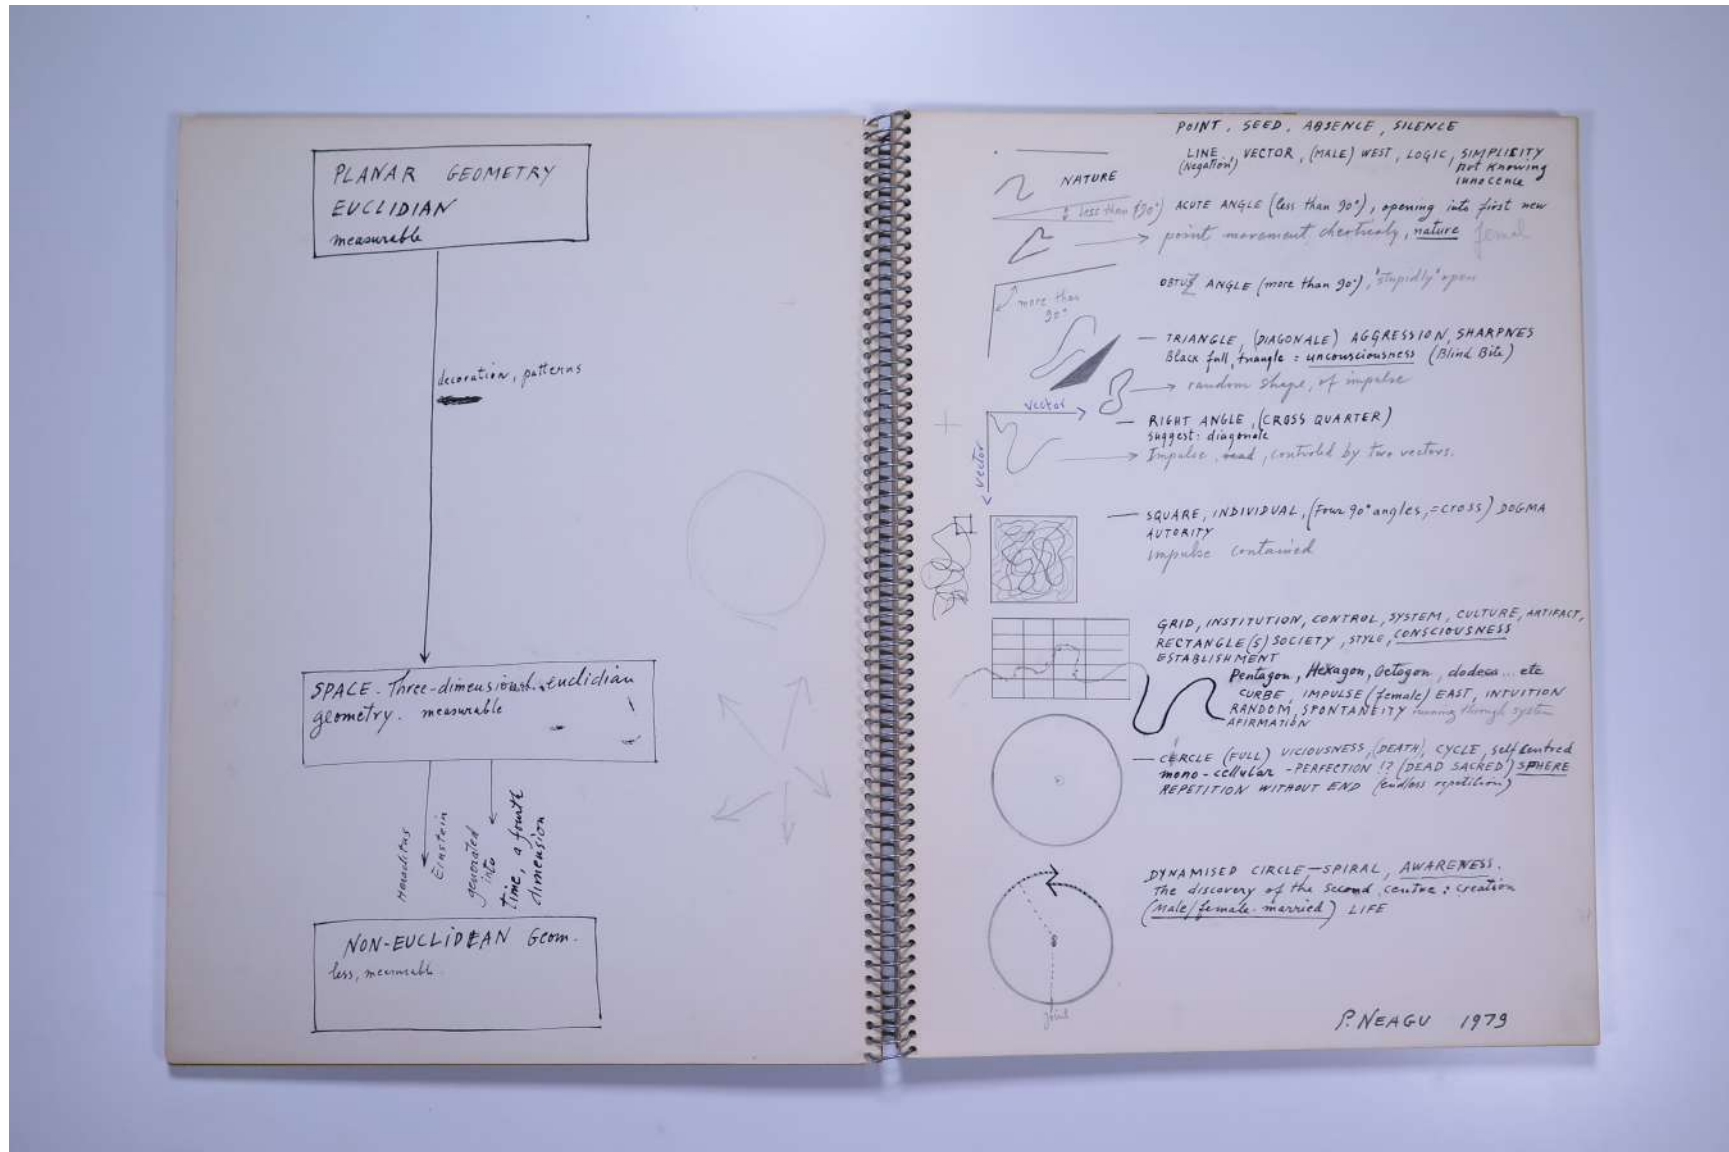 PLANAR GEOMETRY
EUCLIDIAN
measurable
decoration, patterns
SPACE. Three-dimensional euclidian
geometry. measurable
Heraclitus
Einstein
generated
into
time, a fourth
dimension
NON-EUCLIDEAN Geom.
less, measurable
POINT, SEED, ABSENCE, SILENCE
LINE, VECTOR, (MALE) WEST, LOGIC, SIMPLICITY
(Negation)
not knowing
innocence
NATURE
less than (90°)
ACUTE ANGLE (less than 90°), opening into first new
point movement, nature femal
more than
90°
ANGLE (more than 90°), "stupidly" open
— TRIANGLE, (DIAGONALE) AGGRESSION, SHARPNES
Black full, triangle = unconsciousness (Blind Bite)
random shape, of impulse
vector
vector
— RIGHT ANGLE, (CROSS QUARTER)
suggest: diagonale
Impulse, controled by two vectors.
— SQUARE, INDIVIDUAL, (Four 90° angles, = CROSS) DOGMA
AUTORITY
impulse contained
GRID, INSTITUTION, CONTROL, SYSTEM, CULTURE, ARTIFACT,
RECTANGLE(S) SOCIETY, STYLE, CONSCIOUSNESS
ESTABLISHMENT
Pentagon, Hexagon, Octogon, dodeca... etc
CURBE, IMPULSE (female) EAST, INTUITION
RANDOM, SPONTANEITY running through system
AFIRMATION
— CERCLE (FULL) VICIOUSNESS, (DEATH), CYCLE, self centred
mono-cellular - PERFECTION !? (DEAD SACRED) SPHERE
REPETITION WITHOUT END (endless repetition)
DYNAMISED CIRCLE—SPIRAL, AWARENESS.
The discovery of the second centre: creation
(Male/female-married) LIFE
point
P. NEAGU 1979